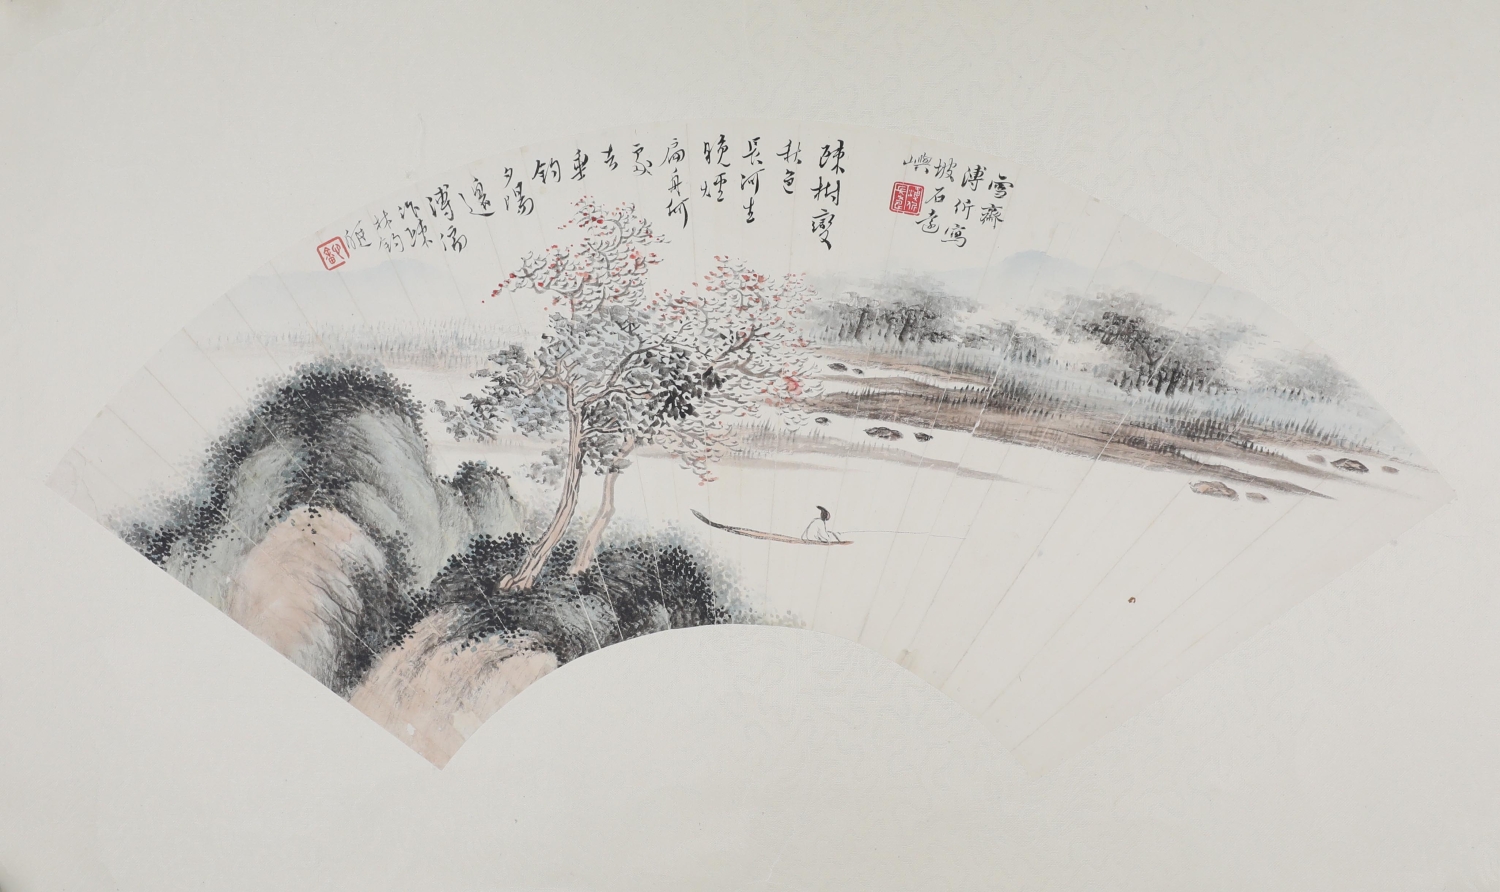 雪齋
溥伒寫
坡石遠
嶼
疎樹變
秋色
長河生
晚煙
扁舟何
處
去
垂
釣
夕陽
邊
溥儒
作疎
林釣
艇